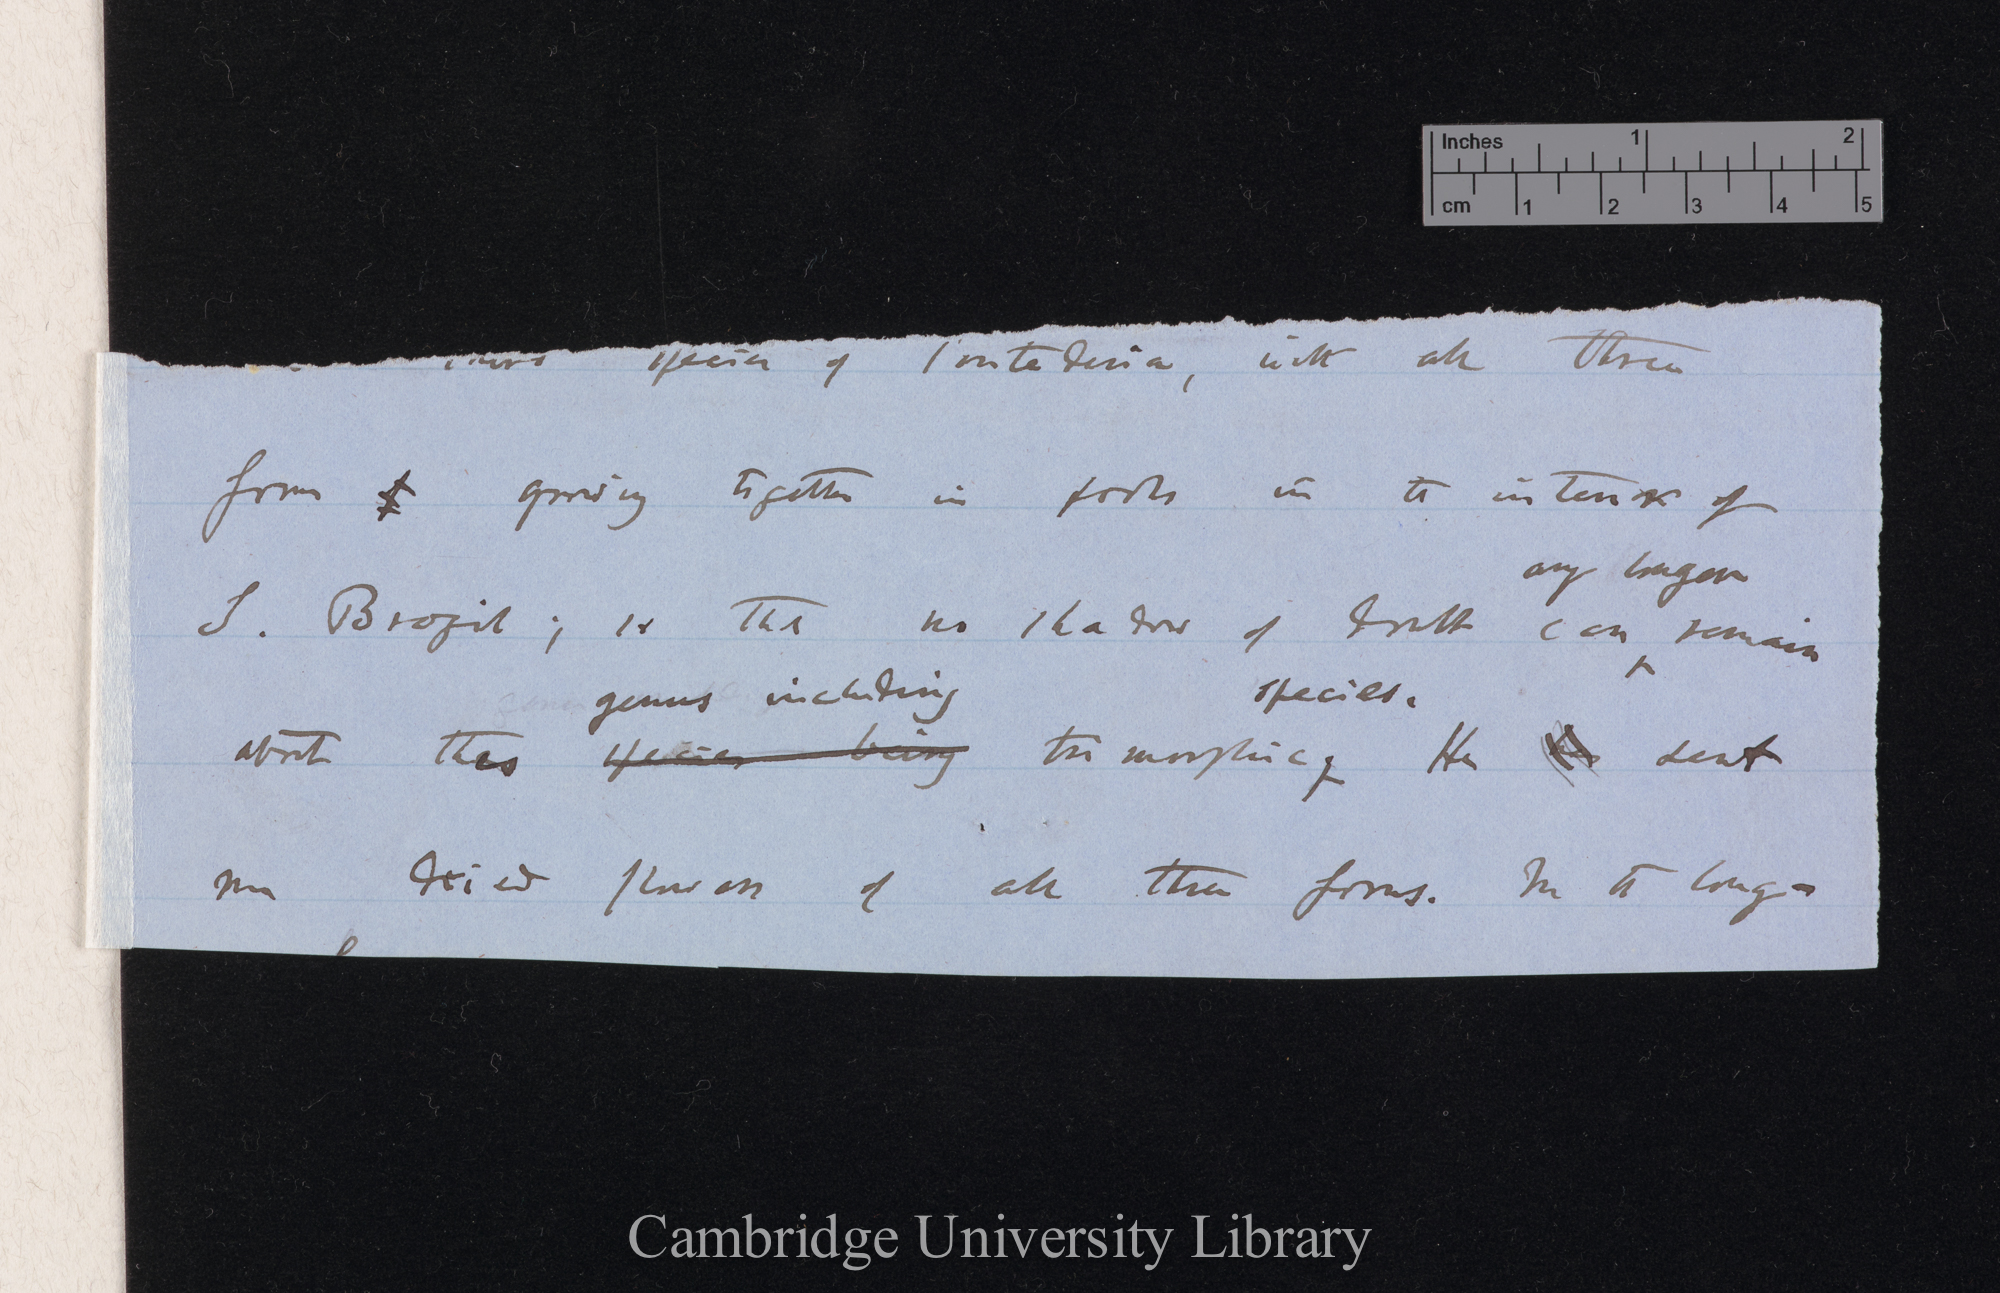 Inches 1 2
cm 1 2 3 4 5
species of Pontederia, with all three
forms growing together in pools in the interior of
any longer
S. Brazil; so that no shadow of doubt can ^ remain
genus including species.
about this species being trimorphic, He sent
me dried flowers of all three forms. In the long-
Cambridge University Library